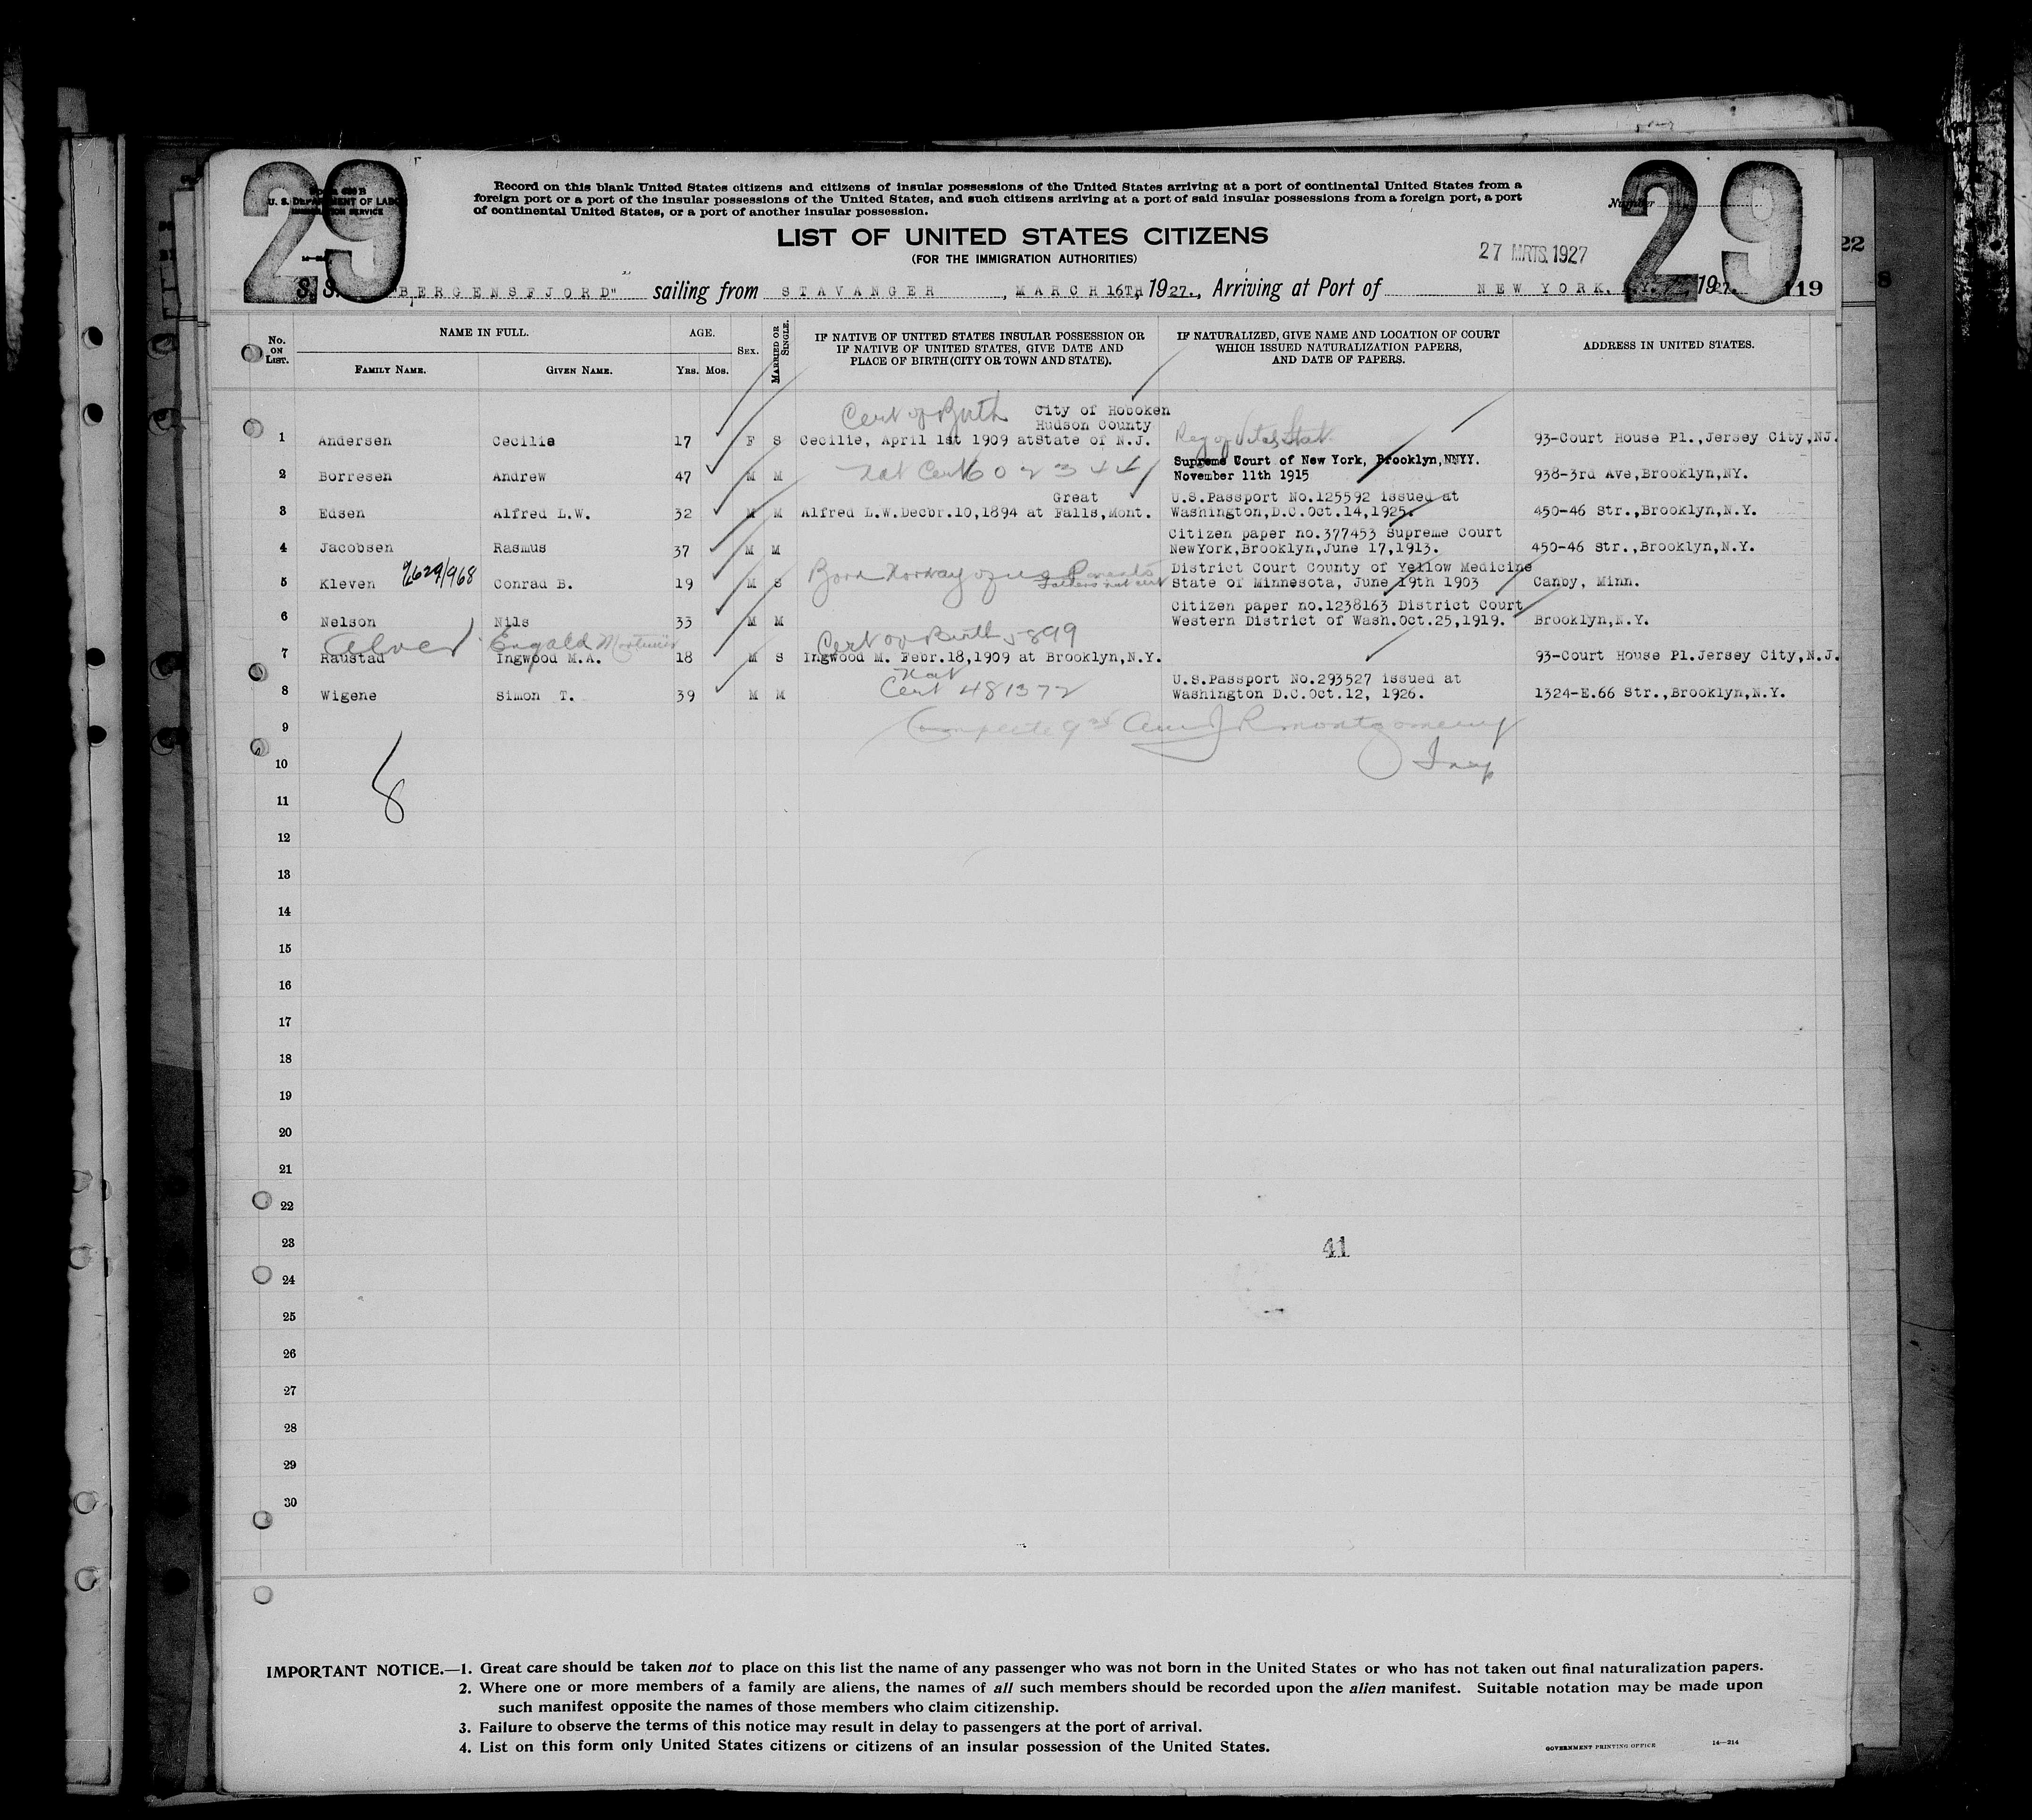 29
29
U. S. DEPARTMENT OF LABOR
IMMIGRATION SERVICE
Number
Record on this blank United States citizens and citizens of insular possessions of the United States arriving at a port of continental United States from a
foreign port or a port of the insular possessions of the United States, and such citizens arriving at a port of said insular possessions from a foreign port, a port
of continental United States, or a port of another insular possession.
LIST OF UNITED STATES CITIZENS
(FOR THE IMMIGRATION AUTHORITIES)
27 MRTS. 1927
S. S. "BERGENSFJORD" sailing from STAVANGER, MARCH 16TH, 1927., Arriving at Port of NEW YORK. N.Y. 1927. 119
22
8
No. ON LIST. NAME IN FULL. AGE. SEX. MARRIED OR SINGLE. IF NATIVE OF UNITED STATES INSULAR POSSESSION OR IF NATIVE OF UNITED STATES, GIVE DATE AND PLACE OF BIRTH (CITY OR TOWN AND STATE). IF NATURALIZED, GIVE NAME AND LOCATION OF COURT WHICH ISSUED NATURALIZATION PAPERS, AND DATE OF PAPERS. ADDRESS IN UNITED STATES.
FAMILY NAME. GIVEN NAME. YRS. MOS.
Cert of Birth City of Hoboken
Hudson County
1 Andersen Cecilie 17 F S Cecilie, April 1st 1909 at State of N.J. Reg of Vital Stat. 93-Court House Pl.,Jersey City,NJ.
Supreme Court of New York, Brooklyn,NNYY.
2 Borresen Andrew 47 M M Nat Cert 602344 November 11th 1915 938-3rd Ave,Brooklyn,NY.
Great U.S.Passport No.125592 issued at
3 Edsen Alfred L.W. 32 M M Alfred L.W.Decbr.10,1894 at Falls,Mont. Washington,D.C.Oct.14,1925. 450-46 Str.,Brooklyn,N.Y.
Citizen paper no.377453 Supreme Court
4 Jacobsen Rasmus 37 M M NewYork,Brooklyn,June 17,1913. 450-46 Str.,Brooklyn,N.Y.
Born Norway of U.S. Parents District Court County of Yellow Medicine
5 Kleven Conrad B. 19 M S Fathers nat cert State of Minnesota, June 19th 1903 Canby, Minn.
Citizen paper no.1238163 District Court
6 Nelson Nils 33 M M Western District of Wash.Oct.25,1919. Brooklyn,N.Y.
Engald Cert of Birth 5899
7 Raustad Ingwood M.A. 18 M S Ingwood M. Febr.18,1909 at Brooklyn,N.Y. 93-Court House Pl.Jersey City,N.J.
Nat U.S.Passport No.293527 issued at
8 Wigene Simon T. 39 M M Cert 481372 Washington D.C.Oct.12, 1926. 1324-E.66 Str.,Brooklyn,N.Y.
9 Complete J R Montgomery
10 Insp
8
11
12
13
14
15
16
17
18
19
20
21
22
23 41
24
25
26
27
28
29
30
IMPORTANT NOTICE.—1. Great care should be taken not to place on this list the name of any passenger who was not born in the United States or who has not taken out final naturalization papers.
2. Where one or more members of a family are aliens, the names of all such members should be recorded upon the alien manifest. Suitable notation may be made upon
such manifest opposite the names of those members who claim citizenship.
3. Failure to observe the terms of this notice may result in delay to passengers at the port of arrival.
4. List on this form only United States citizens or citizens of an insular possession of the United States.
GOVERNMENT PRINTING OFFICE 14—214